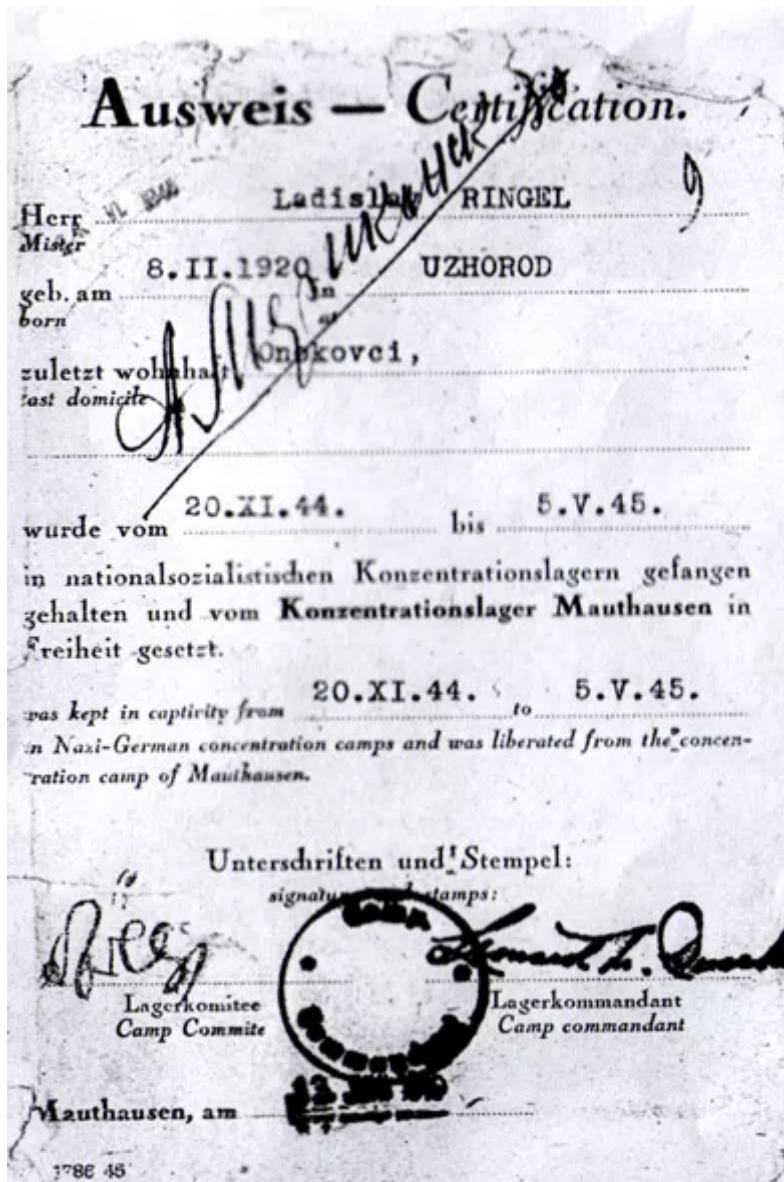 Ausweis — Certification.
Herr Ladislav RINGEL
Mister
8.II.1920 UZHOROD
geb. am in
born at
zuletzt wohnhaft Onokovci,
last domicile
wurde vom 20.XI.44. bis 5.V.45.
in nationalsozialistischen Konzentrationslagern gefangen
gehalten und vom Konzentrationslager Mauthausen in
Freiheit gesetzt.
was kept in captivity from 20.XI.44. to 5.V.45.
in Nazi-German concentration camps and was liberated from the concen-
tration camp of Mauthausen.
Unterschriften und Stempel:
signatures and stamps:
Lagerkomitee Lagerkommandant
Camp Commite Camp commandant
Mauthausen, am
1786 45